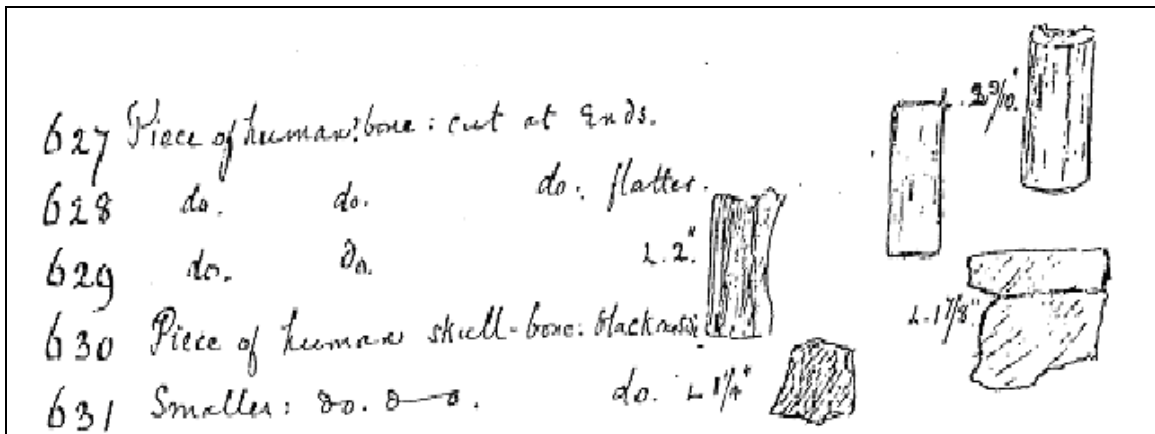 627 Piece of human? bone: cut at Ends.
628 do. do. do. flatter. L.
629 do. do. L. 2"
630 Piece of human skull-bone: L. 1 7/8"
631 Smaller: do. do. do. L 1 1/4"